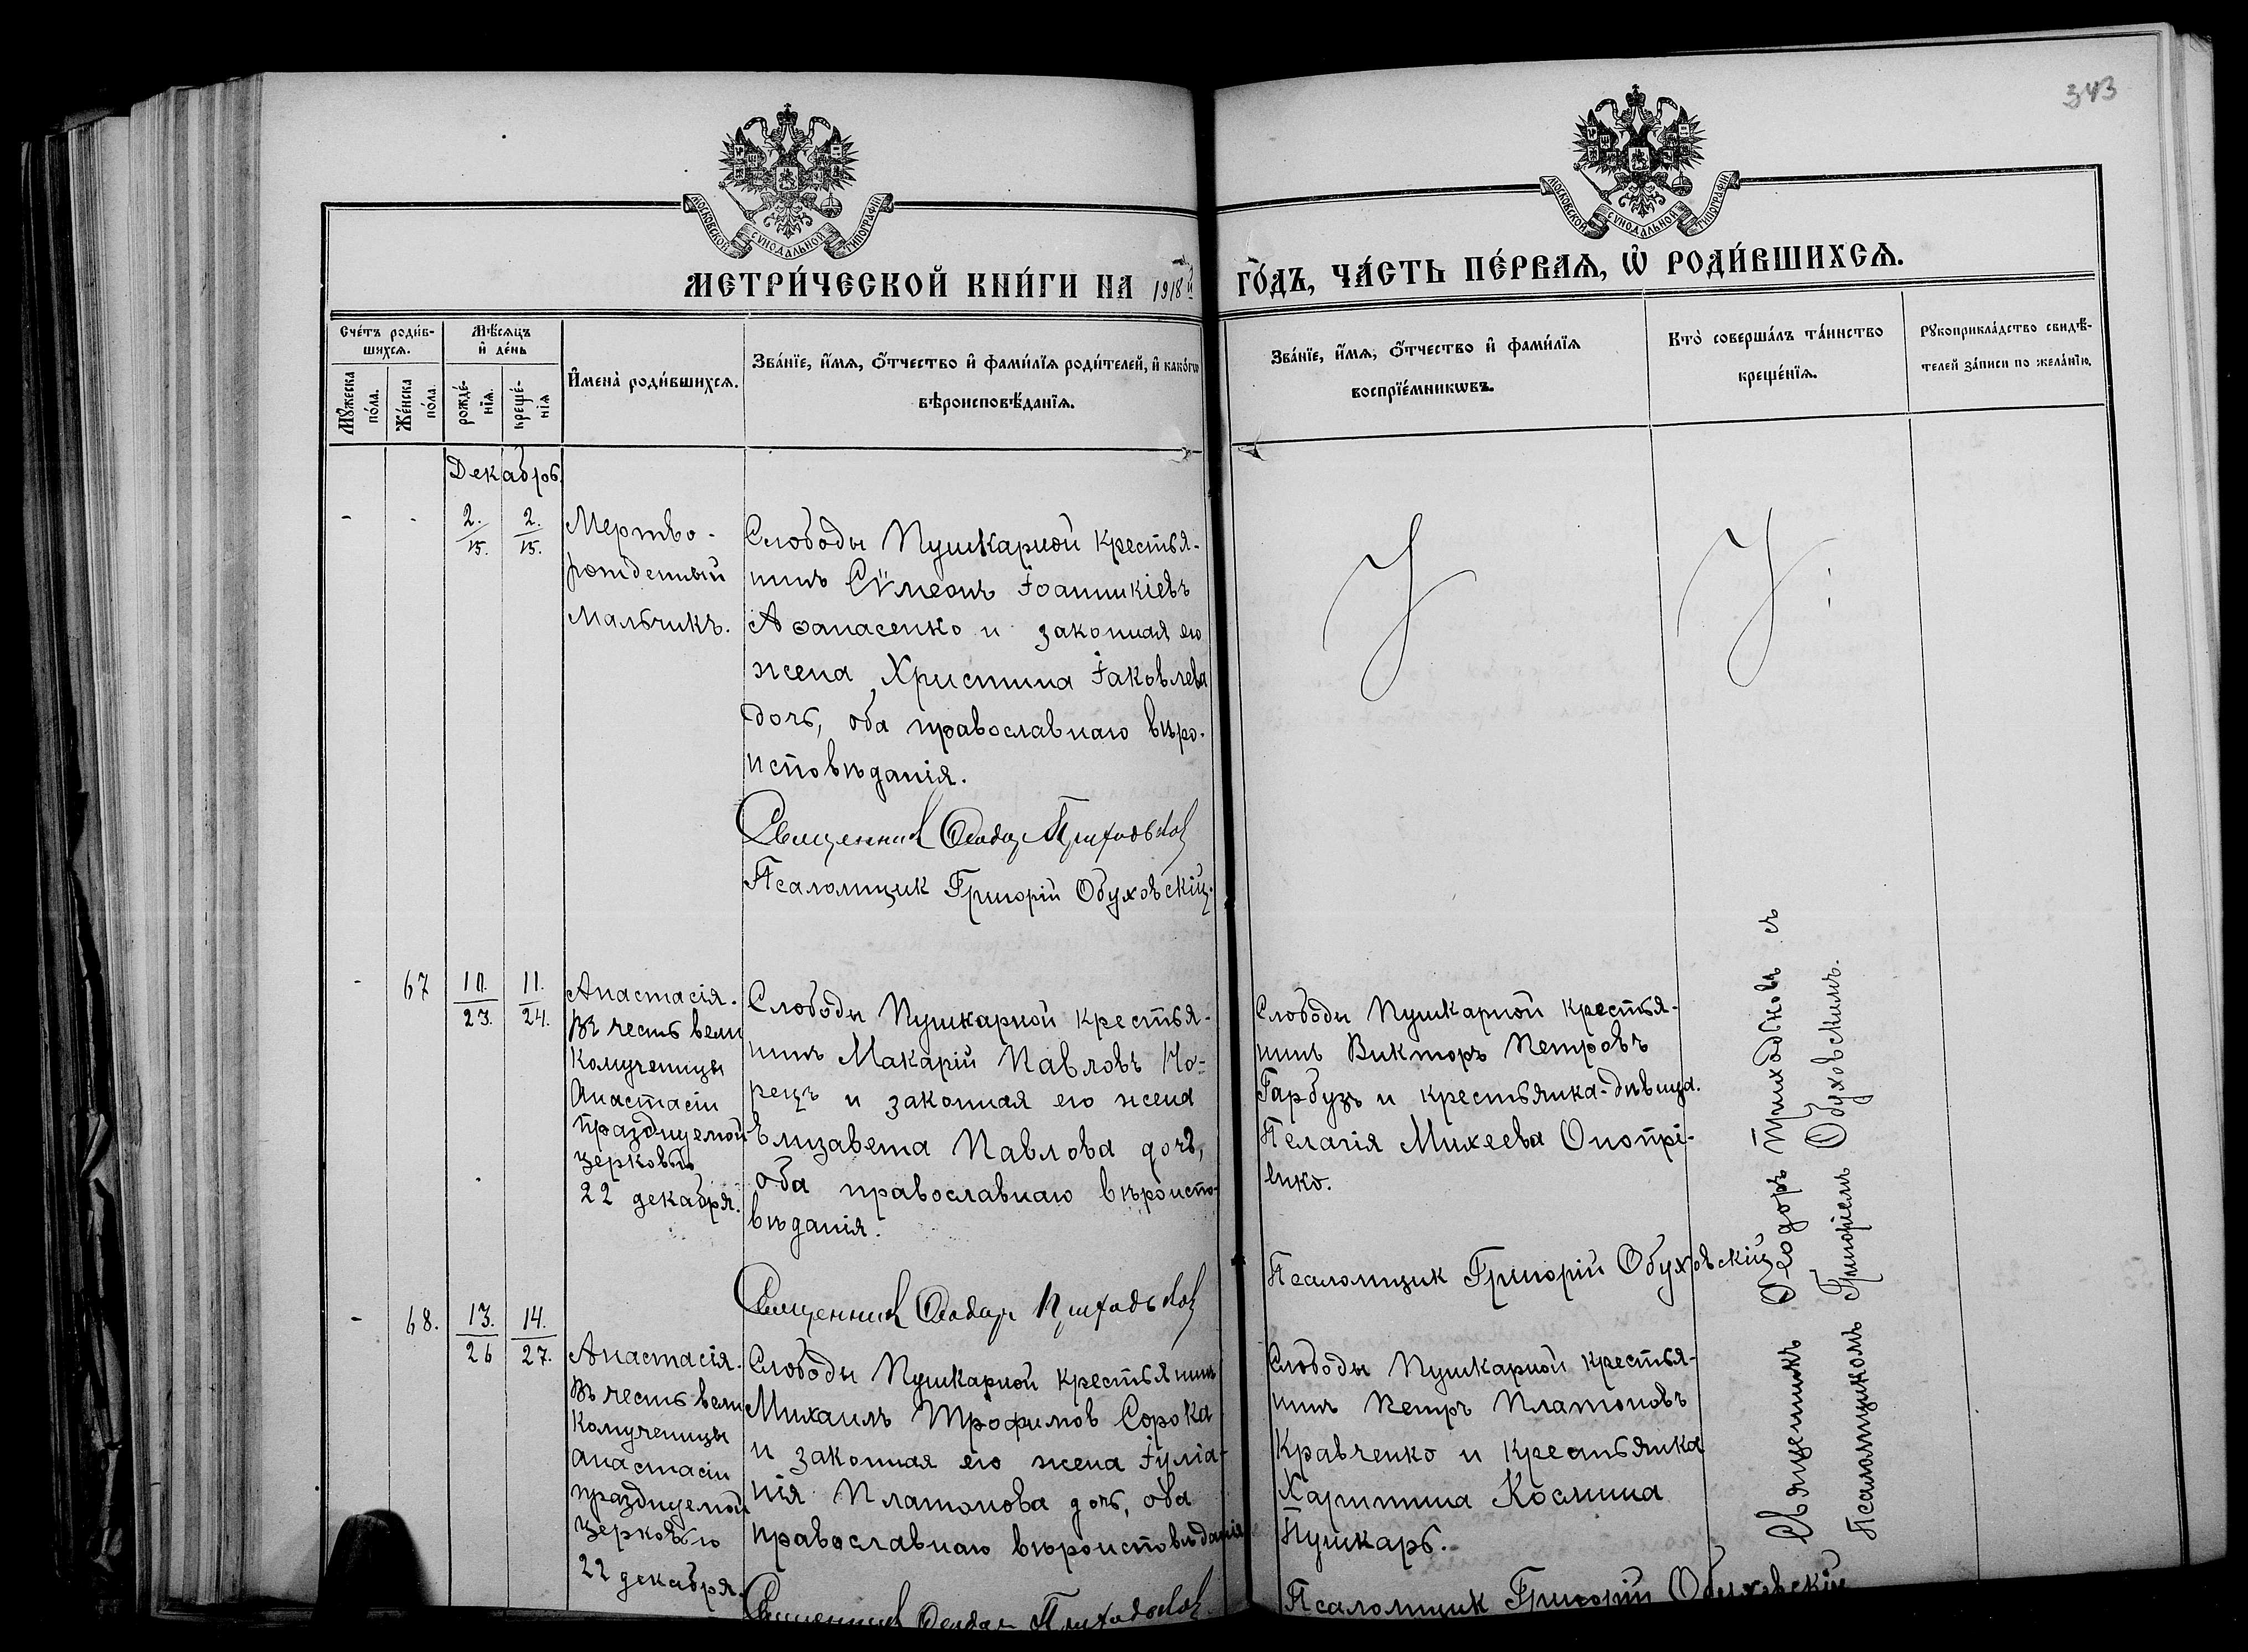 343
МОСКОВСКОЙ СУНОДАЛЬНОЙ ТИПОГРАФІИ
МОСКОВСКОЙ СУНОДАЛЬНОЙ ТИПОГРАФІИ
МЕТРИ́ЧЕСКОЙ КНИ́ГИ НА 1918й ГО́ДЪ, ЧА́СТЬ ПЕ́РВАѦ, Ѡ РОДИ́ВШИХСѦ.
Сче́тъ роди́в-
шихсѧ.
Мѣ́сѧцъ
и҆ де́нь
Мꙋ́жеска
по́ла.
Же́нска
по́ла.
рожде́-
нїѧ.
креще́-
нїѧ
И҆мена̀ роди́вшихсѧ.
Зва́нїе, и҆́мѧ, ѻ҆́тчество и҆ фами́лїѧ роди́телей, и҆ како́гѡ
вѣроисповѣ́данїѧ.
Зва́нїе, и҆́мѧ, ѻ҆́тчество и҆ фами́лїѧ
воспрїе́мникѡвъ.
Кто̀ соверша́лъ та́инство
креще́нїѧ.
Рꙋкоприкла́дство свидѣ́-
телей за́писи по жела́нїю.
Декабрь
- - 2./15. 2./15.
Мертво-
рожденный
мальчикъ.
Слободы Пушкарной крестья-
нинъ Сѵмеонъ Іоанникіевъ
Аѳанасенко и законная его
жена Христина Іаковлева
дочь, оба православнаго вѣро-
исповѣданія.
Священник Ѳеодор Приходьков
Псаломщик Григорій Обуховскій.
- 67 10./23. 11./24.
Анастасія.
Въ честь вели
комученицы
Анастасіи
празднуемой
церковью
22 декабря.
Слободы Пушкарной крестья-
нинъ Макарій Павловъ Но-
рецъ и законная его жена
Елизавета Павлова дочь,
оба православнаго вѣроиспо-
вѣданія.
Священник Ѳеодор Приходьков
Слободы Пушкарной крестья-
нинъ Викторъ Петровъ
Гарбузъ и крестьянка-дѣвица
Пелагія Михеева Онопрі-
енко.
Псаломщик Григорій Обуховскій
- 68. 13./26 14./27.
Анастасія.
Въ честь вели
комученицы
Анастасіи
празднуемой
церковью
22 декабря.
Слободы Пушкарной крестьянинъ
Михаилъ Трофимов Сорока
и законная его жена Іуліа-
нія Платонова дочь, оба
православнаго вѣроисповѣданія
Священник Ѳеодор Приходьков
Слободы Пушкарной крестья-
нинъ Петръ Платоновъ
Кравченко и крестьянка
Харитина Космина
Пушкарь.
Псаломщик Григорій Обуховскій
Священникъ Ѳеодоръ Приходьковъ съ
Псаломщикомъ Григоріемъ Обуховскимъ.